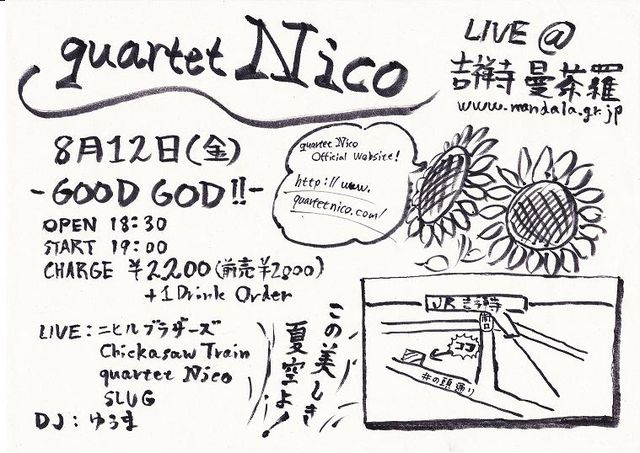 quartet Nico
LIVE @
吉祥寺 曼荼羅
www.mandala.gr.jp
8月12日(金)
-GOOD GOD!!-
OPEN 18:30
START 19:00
CHARGE ¥2200(前売¥2000)
+1Drink Order
quartet Nico
Official Website!
http://www.
quartetnico.com/
LIVE:ニヒルブラザーズ
Chickasaw Train
quartet Nico
SLUG
DJ:ゆうま
この美しき
夏空よ!
JR 吉祥寺
南口
ココ
井の頭通り